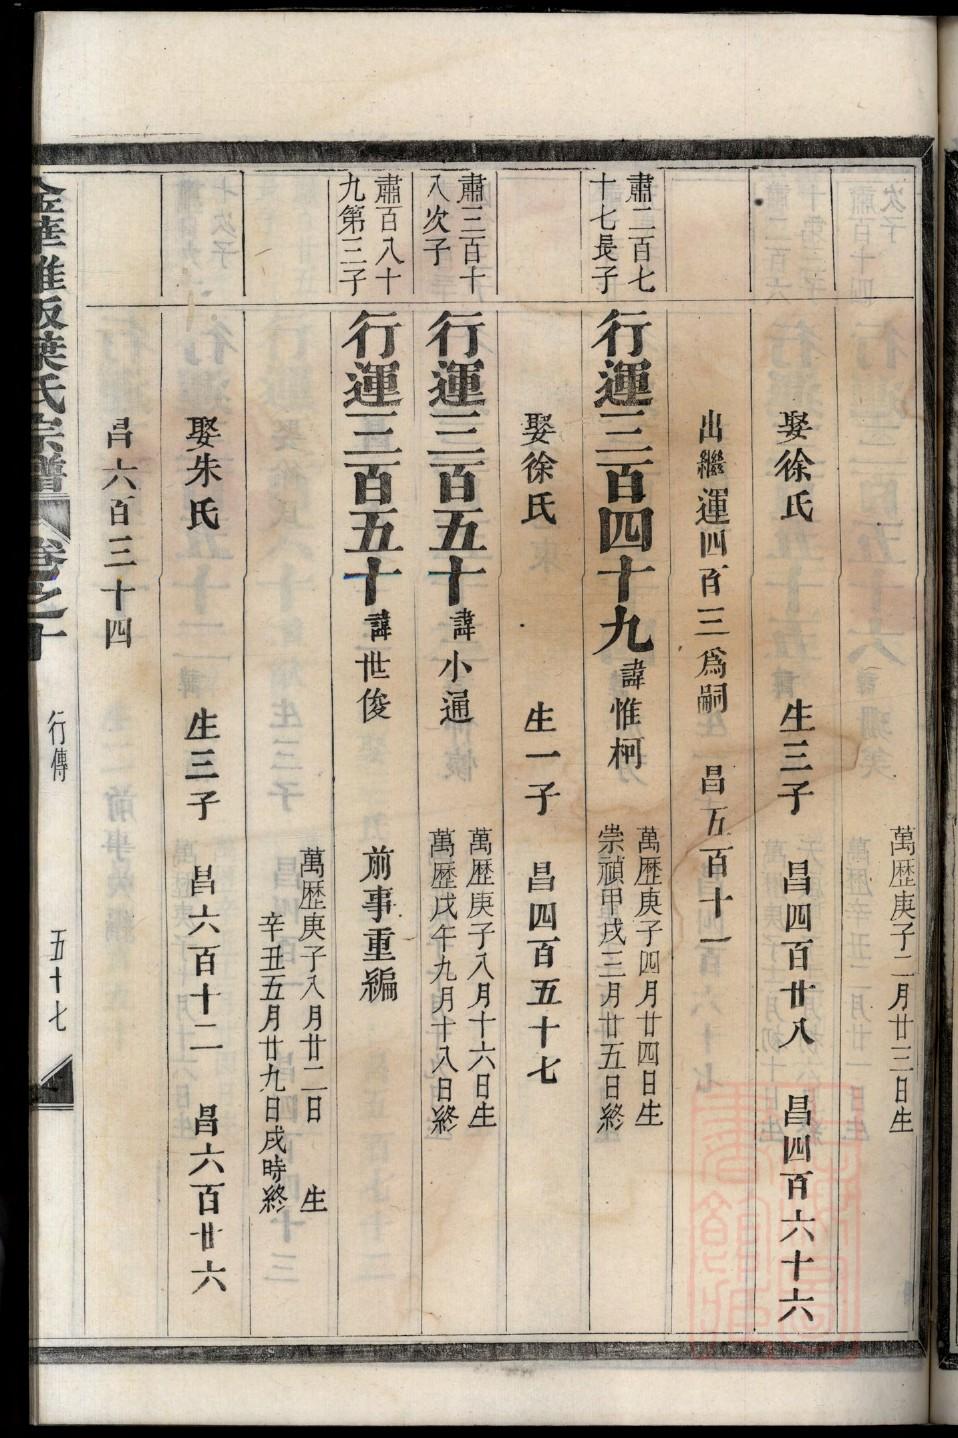 萬歷庚子二月廿三日生
娶徐氏 生三子 昌四百廿八 昌四百六十六
出繼運四百三爲嗣 昌五百十一
肅二百七十七長子
行運三百四十九 諱惟柯 萬歷庚子四月廿四日生
崇禎甲戌三月廿五日終
娶徐氏 生一子 昌四百五十七
肅三百十八次子
行運三百五十 諱小通 萬歷庚子八月十六日生
萬歷戊午九月十八日終
肅百八十九第三子
行運三百五十 諱世俊 前事重編
萬歷庚子八月廿二日 生
辛丑五月廿九日戌時終
娶朱氏 生三子 昌六百十二 昌六百廿六
昌六百三十四
金華雅畈葉氏宗譜 卷之十 行傳 五十七